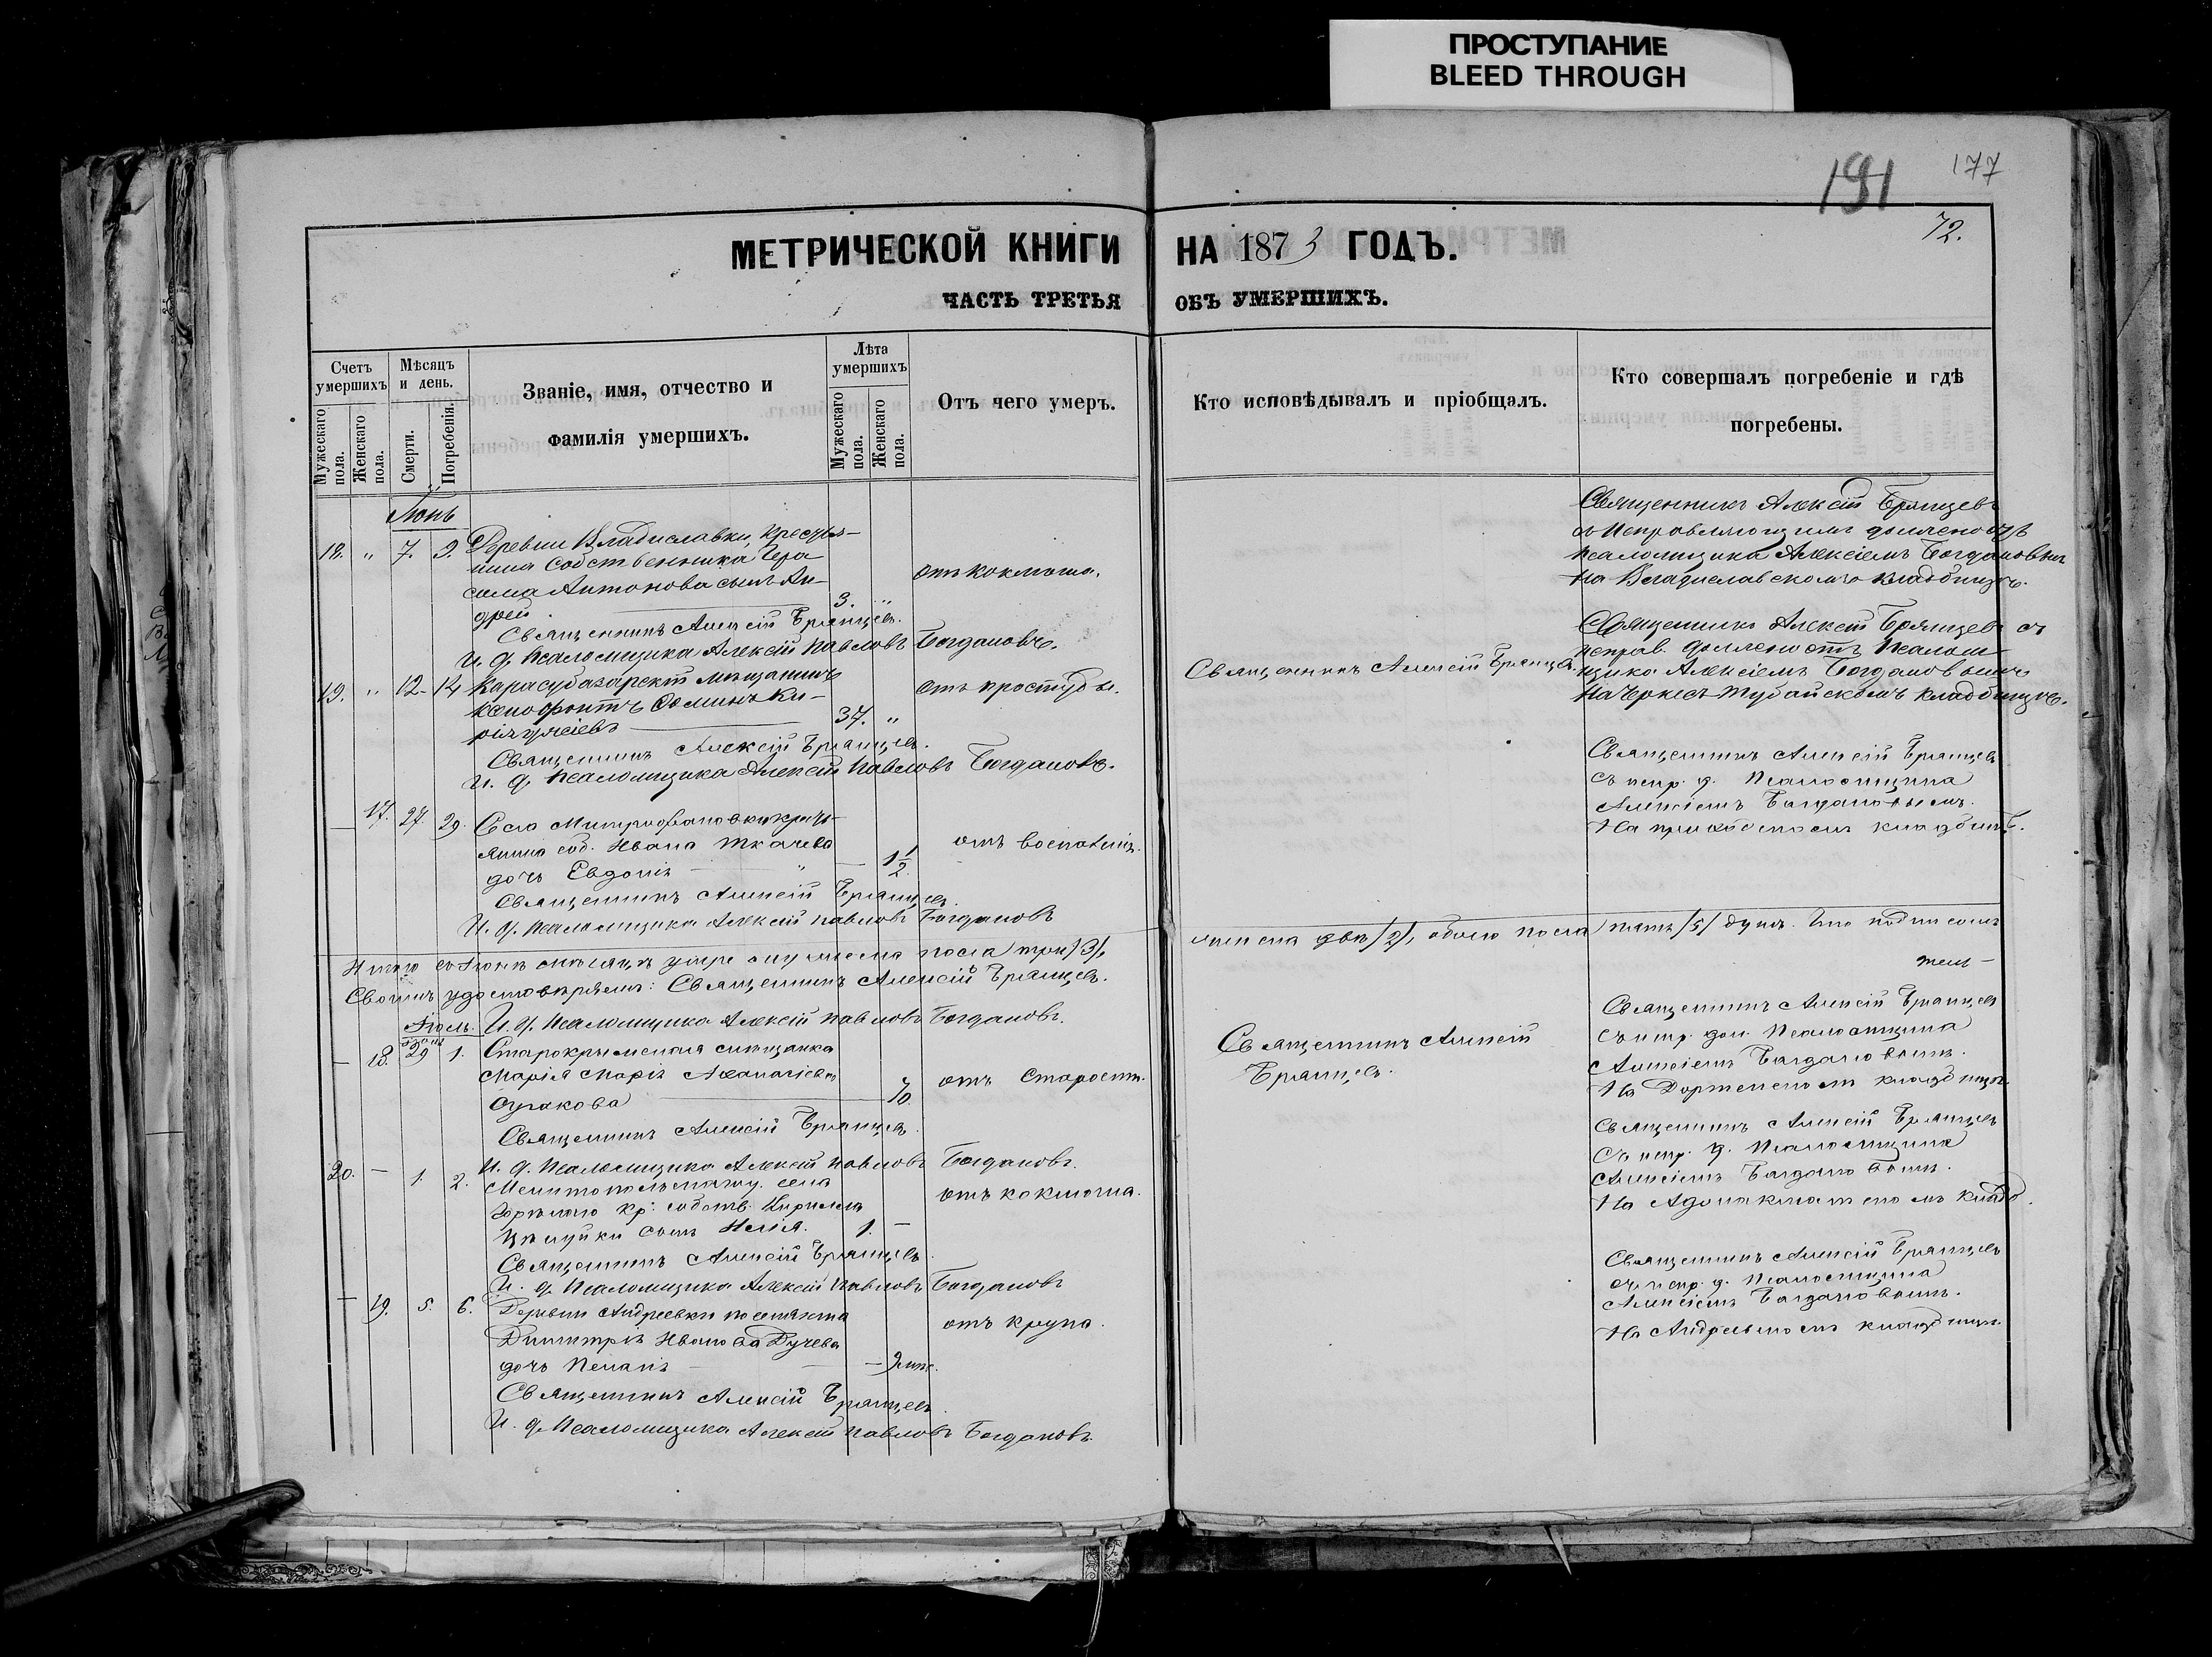 ПРОСТУПАНИЕ
BLEED THROUGH
191 177
72.
МЕТРИЧЕСКОЙ КНИГИ НА 1873 ГОДЪ.
ЧАСТЬ ТРЕТЬЯ ОБЪ УМЕРШИХЪ.
Счетъ умершихъ
Мужескаго пола.
Женскаго пола.
Мѣсяцъ и день.
Смерти.
Погребенія.
Званіе, имя, отчество и
фамилія умершихъ.
Лѣта умершихъ
Мужескаго пола.
Женскаго пола.
Отъ чего умеръ.
Кто исповѣдывалъ и пріобщалъ.
Кто совершалъ погребеніе и гдѣ
погребены.
Іюнь
18. " 7. 9. Деревни Владиславки, кресть-
янина собственника Гера-
сима Антонова сынъ Ан-
дрей 3. "
отъ коклюша.
Священникъ Алексій Брянцевъ
съ исправляющимъ должность
псаломщика Алексіемъ Богдановымъ
на Владиславскомъ кладбищѣ.
Священникъ Алексій Брянцевъ.
И. д. Псаломщика Алексій Павловъ Богдановъ.
19. " 12. 14 Карасубазарскій мѣщанинъ
Ксенофонтъ
37. "
отъ простуды.
Священникъ Алексій Брянцевъ.
Священникъ Алексій Брянцевъ съ
исправ. должность Псалом-
щика Алексіемъ Богдановымъ
на кладбищѣ.
Священникъ Алексій Брянцевъ.
И. д. Псаломщика Алексій Павловъ Богдановъ.
— 17. 27. 29. Села Митрофановки кресть-
янина соб. Ивана Ткачева
дочь Евдокія — 1 1/2
отъ воспаленія.
Священникъ Алексій Брянцевъ
съ испр. д. Псаломщика
Алексіемъ Богдановымъ.
На приходскомъ кладбищѣ.
Священникъ Алексій Брянцевъ.
И. д. Псаломщика Алексій Павловъ Богдановъ
Итого въ Іюнѣ мѣсяцѣ умерло мужеска пола три /3/,
женска двѣ /2/, обоего пола пять /5/ душъ. Что подписомъ
Своимъ удостовѣряемъ: Священникъ Алексій Брянцевъ.
И. д. Псаломщика Алексій Павловъ Богдановъ.
Іюль.
— 18. 29 1. Старокрымская мѣщанка
Марія
— 70
отъ старости.
Священникъ Алексій
Брянцевъ.
Священникъ Алексій Брянцевъ
съ испр. дол. Псаломщика
Алексіемъ Богдановымъ.
На кладбищѣ.
Священникъ Алексій Брянцевъ.
И. д. Псаломщика Алексій Павловъ Богдановъ.
20. — 1. 2. Мелитопольскаго у. села
кр. собств. Кирилла
сынъ Илія. 1. —
отъ коклюша.
Священникъ Алексій Брянцевъ
съ испр. д. Псаломщика
Алексіемъ Богдановымъ.
На кладб.
Священникъ Алексій Брянцевъ.
И. д. Псаломщика Алексій Павловъ Богдановъ
— 19. 5. 6. Деревни Андреевки поселянина
Димитрія Иванова
дочь Пелагія — 2 мѣс.
отъ крупа.
Священникъ Алексій Брянцевъ
съ испр. д. Псаломщика
Алексіемъ Богдановымъ.
На Андреевскомъ кладбищѣ.
Священникъ Алексій Брянцевъ.
И. д. Псаломщика Алексій Павловъ Богдановъ.